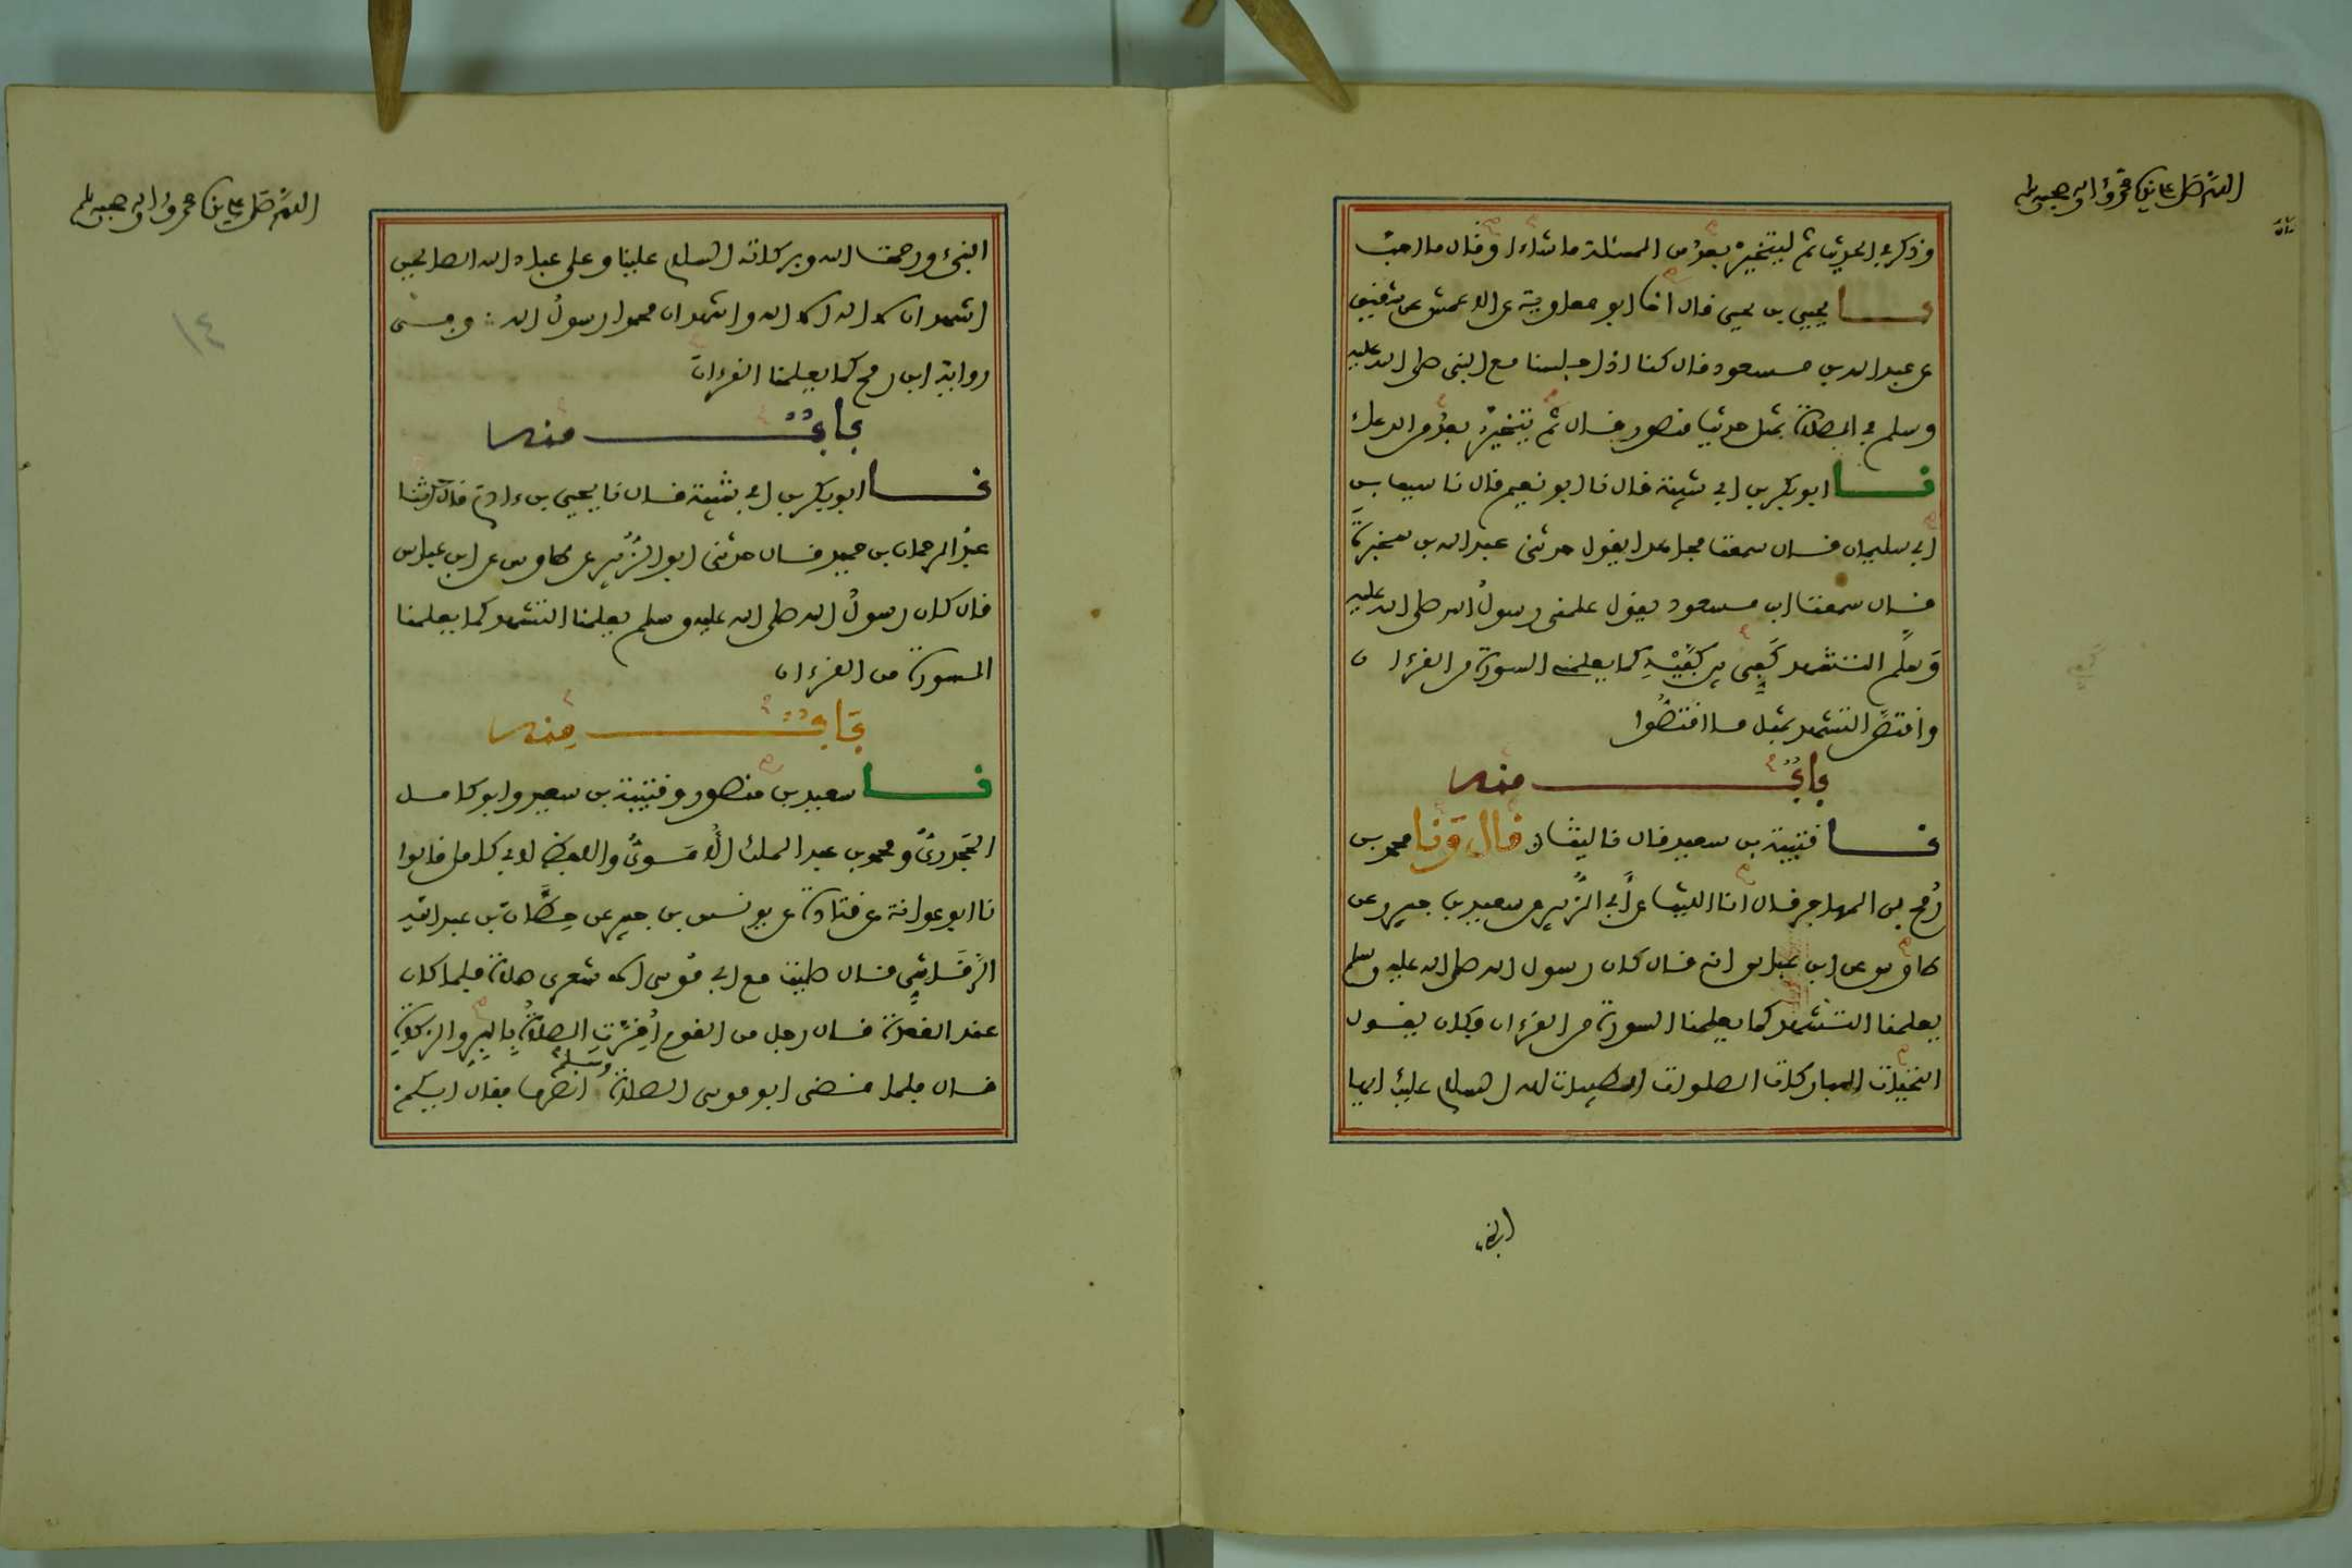 اللهم صل على سيدنا محمد وءاله وصحبه وسلم
وذكر في الحديث ثم ليتخير بعد من المسئلة ما شاء او قال ما احب
نا يحيى بن يحيى قال انا ابو معاوية عن الاعمش عن شقيق
عن عبد الله بن مسعود قال كنا اذا جلسنا مع النبي صلى الله عليه
وسلم في الصلاة بمثل حديث منصور قال ثم يتخير بعد من الدعاء
نا ابو بكر بن ابي شيبة قال نا ابو نعيم قال نا سيف بن
ابي سليمان قال سمعت مجاهدا يقول حدثني عبد الله بن سخبرة
قال سمعت ابن مسعود يقول علمني رسول الله صلى الله عليه
وسلم التشهد كفي بين كفيه كما يعلمني السورة من القرءان
واقتص التشهد بمثل ما اقتصوا
باب منه
نا قتيبة بن سعيد قال نا ليث قال ونا محمد بن
رمح بن المهاجر قال انا الليث عن ابي الزبير عن سعيد بن جبير وعن
طاوس عن ابن عباس انه قال كان رسول الله صلى الله عليه وسلم
يعلمنا التشهد كما يعلمنا السورة من القرءان وكان يقول
التحيات المباركات الصلوات الطيبات لله السلام عليك ايها
النبي
اللهم صل على سيدنا محمد وءاله وصحبه وسلم
١٤
النبي ورحمت الله وبركاته السلام علينا وعلى عباد الله الصالحين
اشهد ان لا اله الا الله واشهد ان محمدا رسول الله وفي
رواية ابن رمح كما يعلمنا القرءان
باب منه
نا ابو بكر بن ابي شيبة قال نا يحيى بن ءادم قال حدثنا
عبد الرحمان بن حميد قال حدثني ابو الزبير عن طاوس عن ابن عباس
قال كان رسول الله صلى الله عليه وسلم يعلمنا التشهد كما يعلمنا
السورة من القرءان
باب منه
نا سعيد بن منصور وقتيبة بن سعيد وابو كامل
الجحدري ومحمد بن عبد الملك الاموي واللفظ لابي كامل قالوا
نا ابو عوانة عن قتادة عن يونس بن جبير عن حطان بن عبد الله
الرقاشي قال صليت مع ابي موسى الاشعري صلاة فلما كان
عند القعدة قال رجل من القوم اقرت الصلاة بالبر والزكاة
قال فلما قضى ابو موسى الصلاة وسلم انصرف فقال ايكم